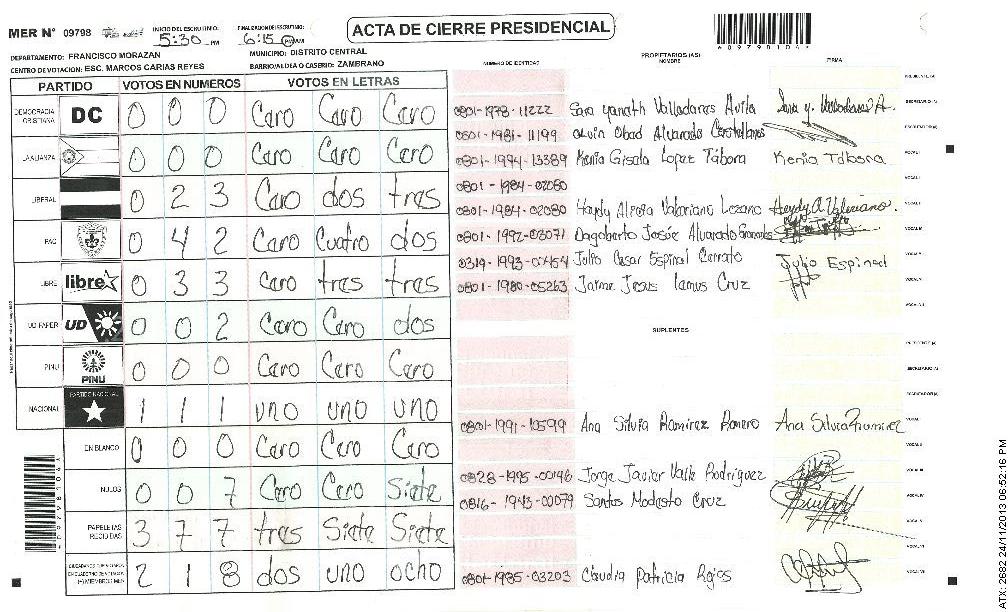 MER N° 09798
INICIO DEL ESCRUTINIO:
5:30 PM
FINALIZACION DE ESCRUTINIO:
6:15 PM
ACTA DE CIERRE PRESIDENCIAL
DEPARTAMENTO: FRANCISCO MORAZAN
MUNICIPIO: DISTRITO CENTRAL
CENTRO DE VOTACION: ESC. MARCOS CARIAS REYES
BARRIO/ALDEA O CASERIO: ZAMBRANO
NUMERO DE IDENTIDAD
PROPIETARIOS (AS)
NOMBRE
FIRMA
PARTIDO VOTOS EN NUMEROS VOTOS EN LETRAS
DEMOCRACIA CRISTIANA DC 0 0 0 Cero Cero Cero
LA ALIANZA 0 0 0 Cero Cero Cero
LIBERAL 0 2 3 Cero dos tres
PAC 0 4 2 Cero Cuatro dos
LIBRE libre 0 3 3 Cero tres tres
UD FAPER UD 0 0 2 Cero Cero dos
PINU PINU 0 0 0 Cero Cero Cero
NACIONAL PARTIDO NACIONAL 1 1 1 uno uno uno
EN BLANCO 0 0 0 Cero Cero Cero
NULOS 0 0 7 Cero Cero Siete
PAPELETAS RECIBIDAS 3 7 7 tres Siete Siete
2 1 8 dos uno ocho
0801-1978-11222 Sara Yanath Valladares Avila
SECRETARIO (A)
0801-1981-11199 Alvin Obed Alvarado Castellanos
ESCRUTADOR (A)
0801-1994-13389 Kenia Gisela Lopez Tabora Kenia Tabora
VOCAL I
0801-1984-02080
0801-1984-02080 Heydy Alicia Valeriano Lozano Heydy A Valeriano.
0801-1992-03071 Dagoberto Josue Alvarado
0319-1993-00454 Julio Cesar Espinal Cerrato Julio Espinal
0801-1980-05263 Jaime Jesus Lamus Cruz
SUPLENTES
0801-1991-10599 Ana Silvia Ramirez Romero Ana Silvia Ramirez
0828-1995-00146 Jorge Javier Valle Rodriguez
0816-1943-00079 Santos Modesto Cruz
0801-1985-03203 Claudia Patricia Rojas
ATX: 2682 24/11/2013 06:52:16 PM